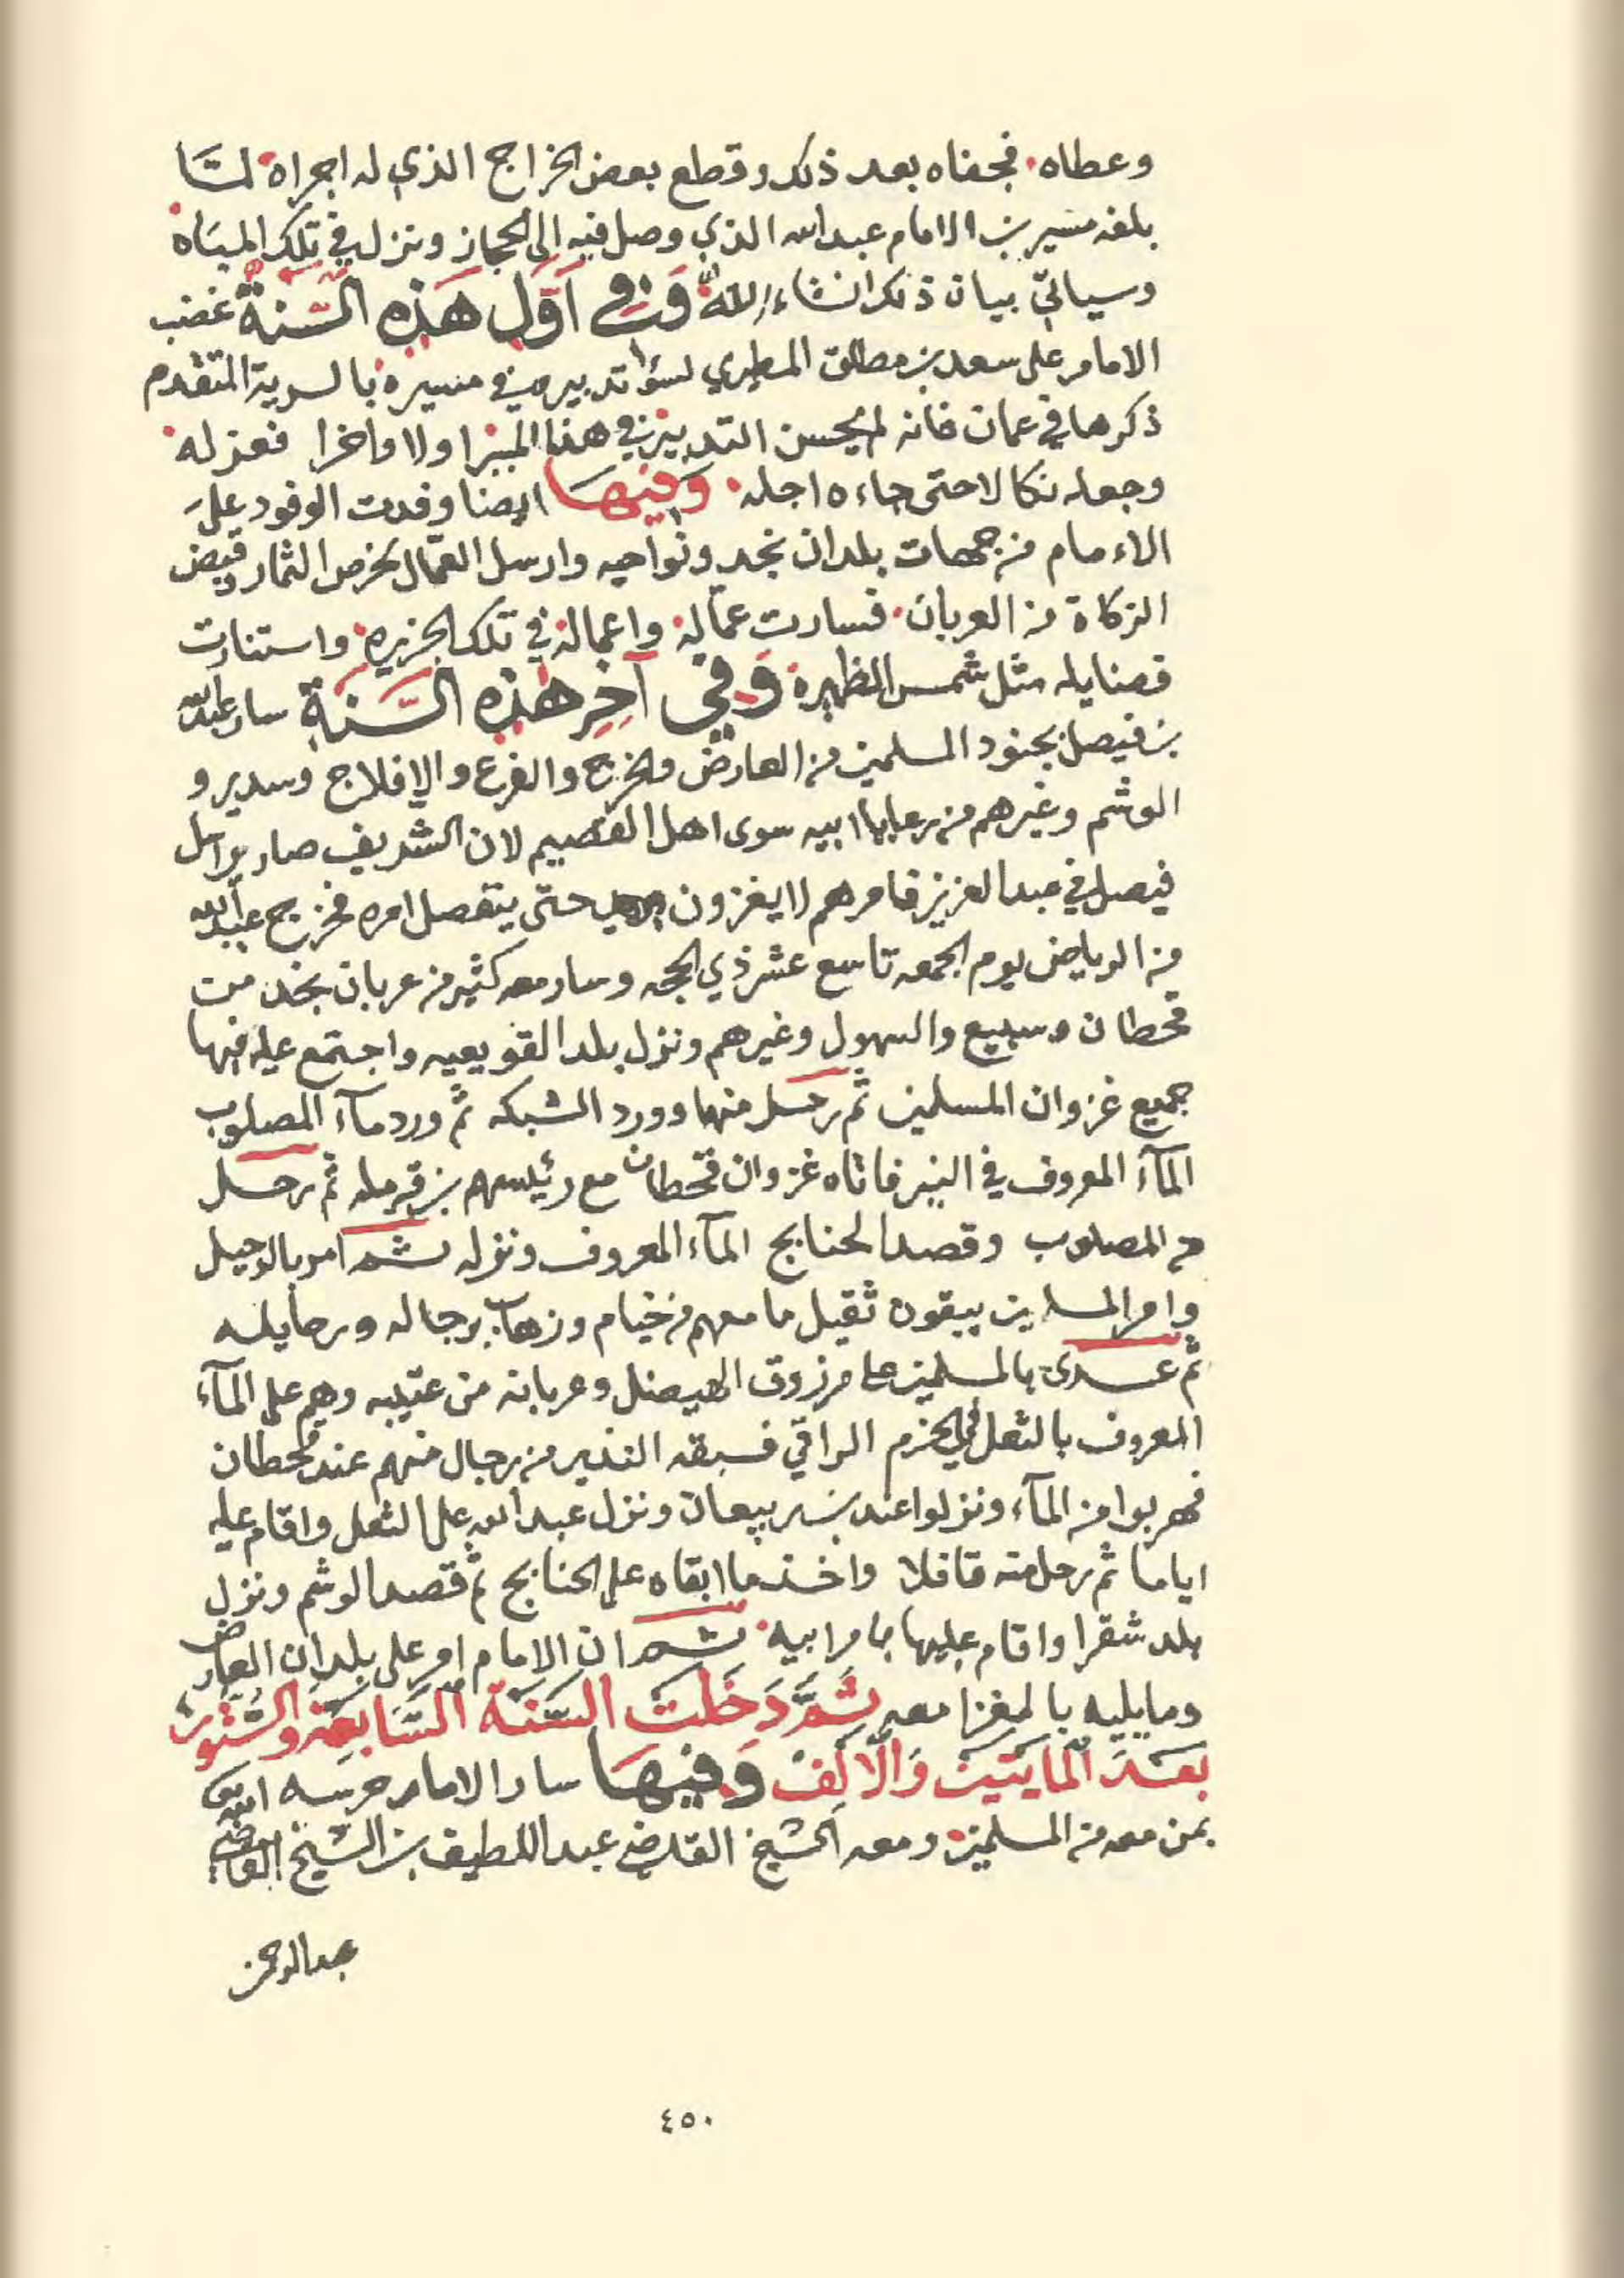 وعطاه. فجفاه بعد ذلك وقطع بعض الخراج الذي له اجراه لمّا
بلغه مسير بن الامام عبدالله الذي وصل فيه الى الحجاز ونزل في تلك المياه
وسياتي بيان ذلك انشاء الله وَفي أَوَّل هَذِه السَّنَة غضب
الامام على سعد بن مطلق المطيري لسؤ تدبيره في مسيره بالسرية المتقدم
ذكرها في عمان فانه لم يحسن التدبير في هذا المبزا ولا واخرا فعزله
وجعله نكالا حتى جاءه اجله. وَفيهَا ايضا وفدت الوفود على
الاءمام من جهات بلدان نجد ونواحيه وارسل العمّال لخرص الثمار وقبض
الزكاة من العربان. فسارت عمّاله واعماله في تلك الجزيره واستنارت
فضايله مثل شمس الظهيرة وَفي آخِر هذِه السَّنَةِ سار عبدالله
بن فيصل بجنود المسلمين من العارض والخرج والفرع والافلاج وسدير و
الوشم وغيرهم من رعايا ابيه سوى اهل القصيم لان الشريف صار يراسل
فيصل في عبدالعزيز فامرهم لا يغزون حتى يتفصل امره فخرج عبدالله
من الرياض يوم الجمعه تاسع عشر ذي الحجه وسار معه كثير من عربان نجد من
قحطان وسبيع والسهول وغيرهم ونزل بلد القويعيه واجتمع عليه فيها
جميع غزوان المسلمين ثم رحل منها وورد الشبكه ثم ورد مآء المصلوب
المآء المعروف في النير فاتاه غزوان قحطان مع رئيسهم بن قرمله ثم رحل
من المصلوب وقصد الحنابج المآء المعروف ونزله ثم امر بالرحيل
وامر المسلمين يبقون ثقيل ما معهم من خيام وزهاب برجاله ورحايله
ثم عدى بالمسلمين على مرزوق الهيضل وعربانه من عتيبه وهم على المآء
المعروف بالثعل في الحزم الراقي فسبقه النذير من رجال منهم عند قحطان
فهربوا من المآء ونزلوا عند بن ربيعان ونزل عبدالله على الثعل واقام عليه
اياما ثم رحل منه قافلا واخذ ما ابقاه على الحنابج ثم قصد الوشم ونزل
بلد شقرا واقام عليها بامر ابيه. ثم ان الامام امر على بلدان العارض
ومايليه بالمغزا معه ثُمَّ دَخَلَت السَّنَة السَّابعَة والسِّتّون
بَعْدَ المايَتَين وَالأَلف وَفيهَا سار الامام حرسه الله
بمن معه من المسلمين. ومعه الشيخ القاضي عبداللطيف بن الشيخ القاضي
عبدالرحمن
٤٥٠